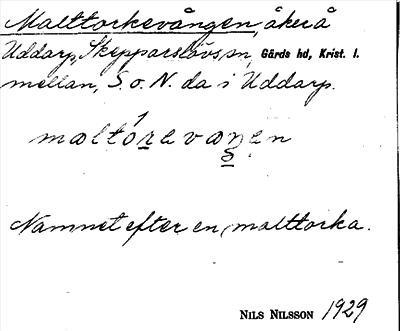 Malttorkevången, åker å
Uddarp, Skepparslövs sn, Gärds hd, Krist. l.
mellan S. o. N. da i Uddarp.
Namnet efter en malttorka.
NILS NILSSON 1929